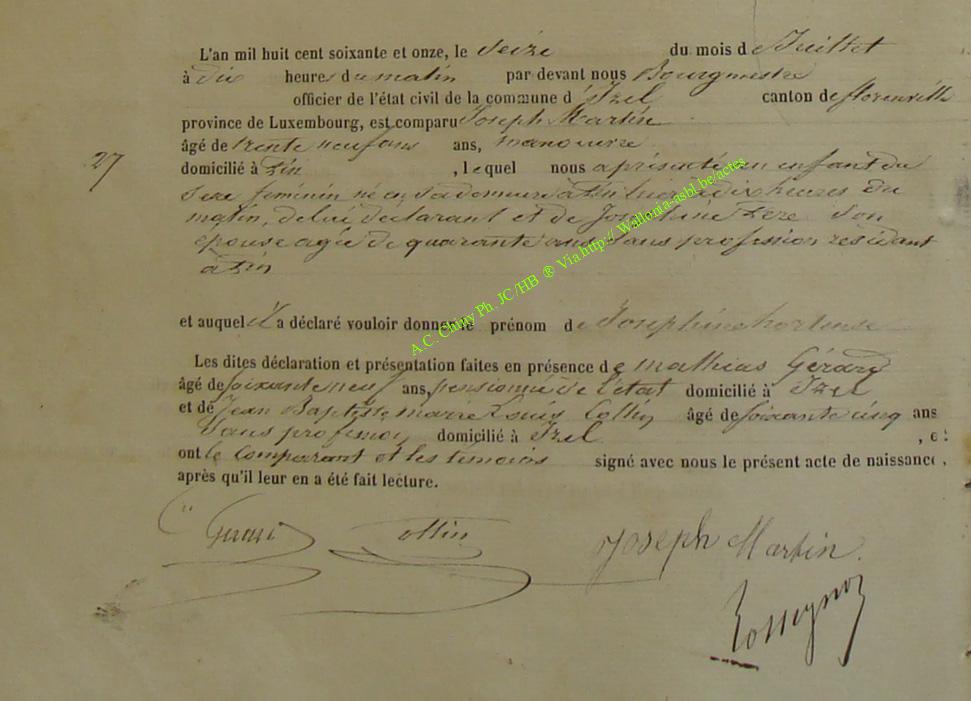 L'an mil huit cent soixante et onze, le seize du mois d e Juillet
à dix heures du matin par devant nous Bourgmestre
officier de l'état civil de la commune d' Izel canton de florenville
province de Luxembourg, est comparu Joseph Martin
27 âgé de trente neuf ans ans, manouvre
domicilié à , lequel nous a présenté un enfant du
sexe féminin né en sa demeure à dix heures du
matin, de lui déclarant et de Joséphine son
épouse agée de quarante ans sans profession résidant
à
et auquel il a déclaré vouloir donner le prénom de Joséphine hortense
Les dites déclaration et présentation faites en présence de mathias Gérard
âgé de soixante neuf ans, pensionné de l'état domicilié à Izel
et de Jean Baptiste Louis Collin âgé de soixante cinq ans
sans profession domicilié à Izel , et
ont le comparant et les témoins signé avec nous le présent acte de naissance,
après qu'il leur en a été fait lecture.
Gerard Collin Joseph Martin
Rossignon
A.C. Chiny Ph. JC/HB ® Via http://Wallonia-asbl.be/actes